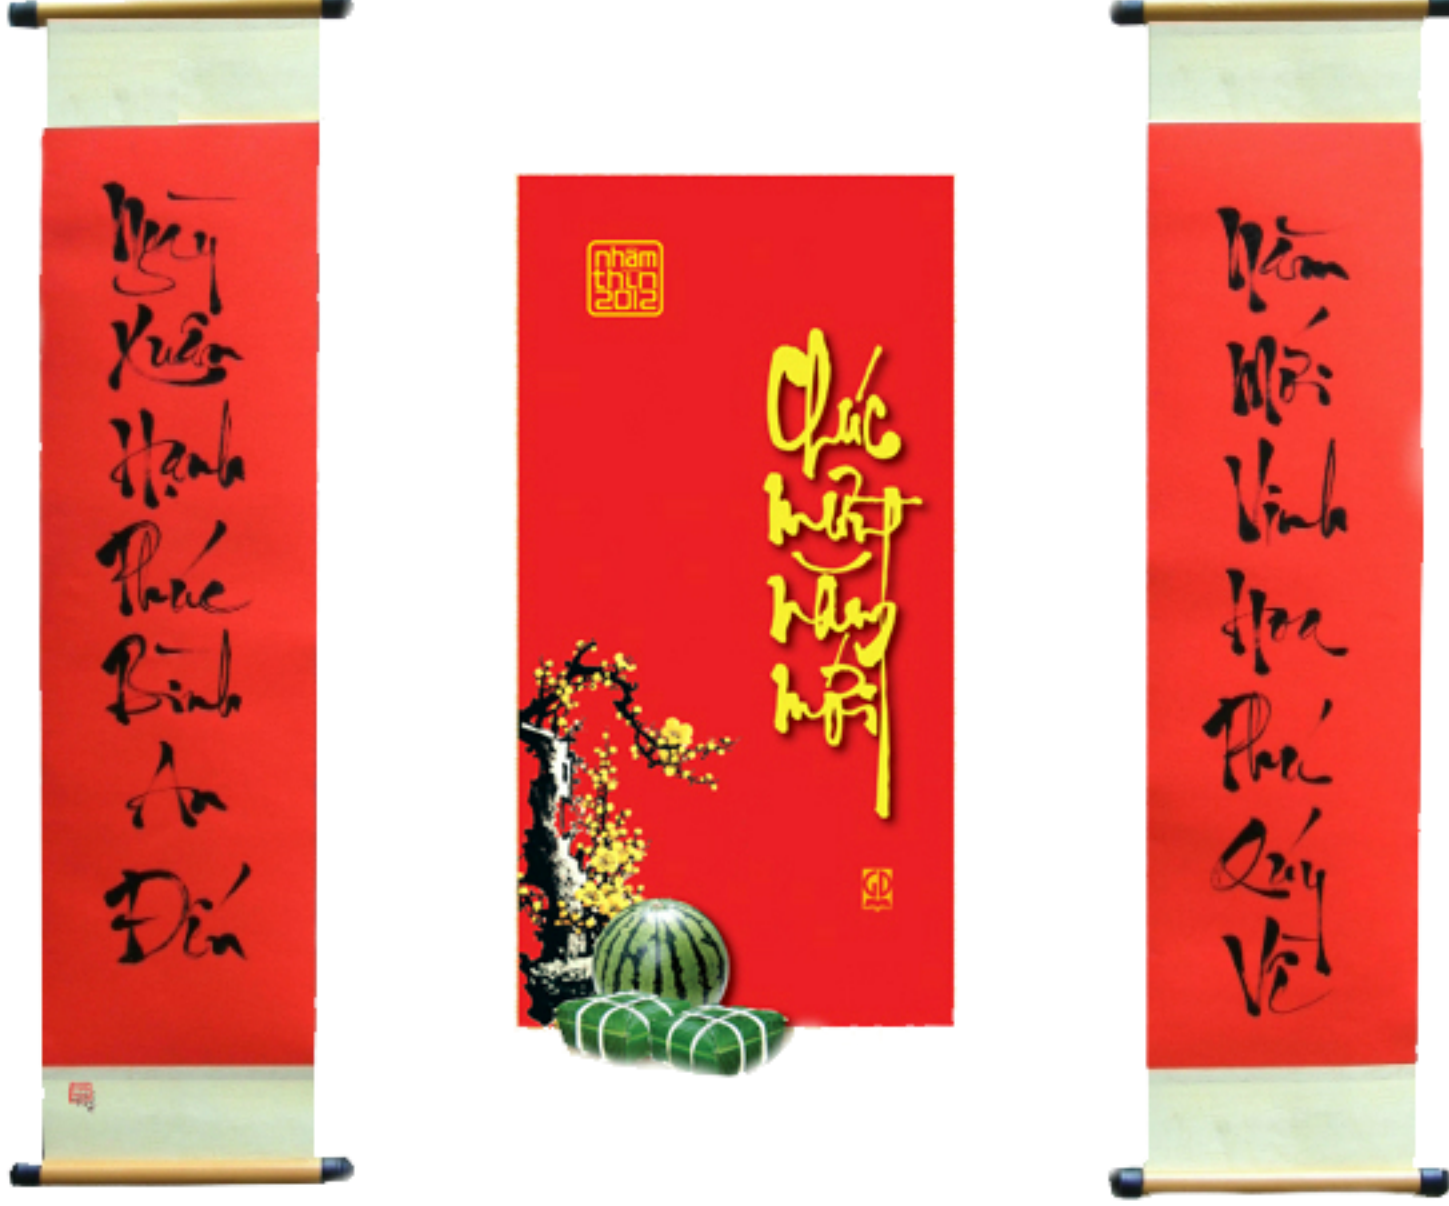 Ngày
Xuân
Hạnh
Phúc
Bình
An
Đến
nhâm
thìn
2012
Chúc
mừng
năm
mới
GD
Năm
Mới
Vinh
Hoa
Phú
Qúy
Về